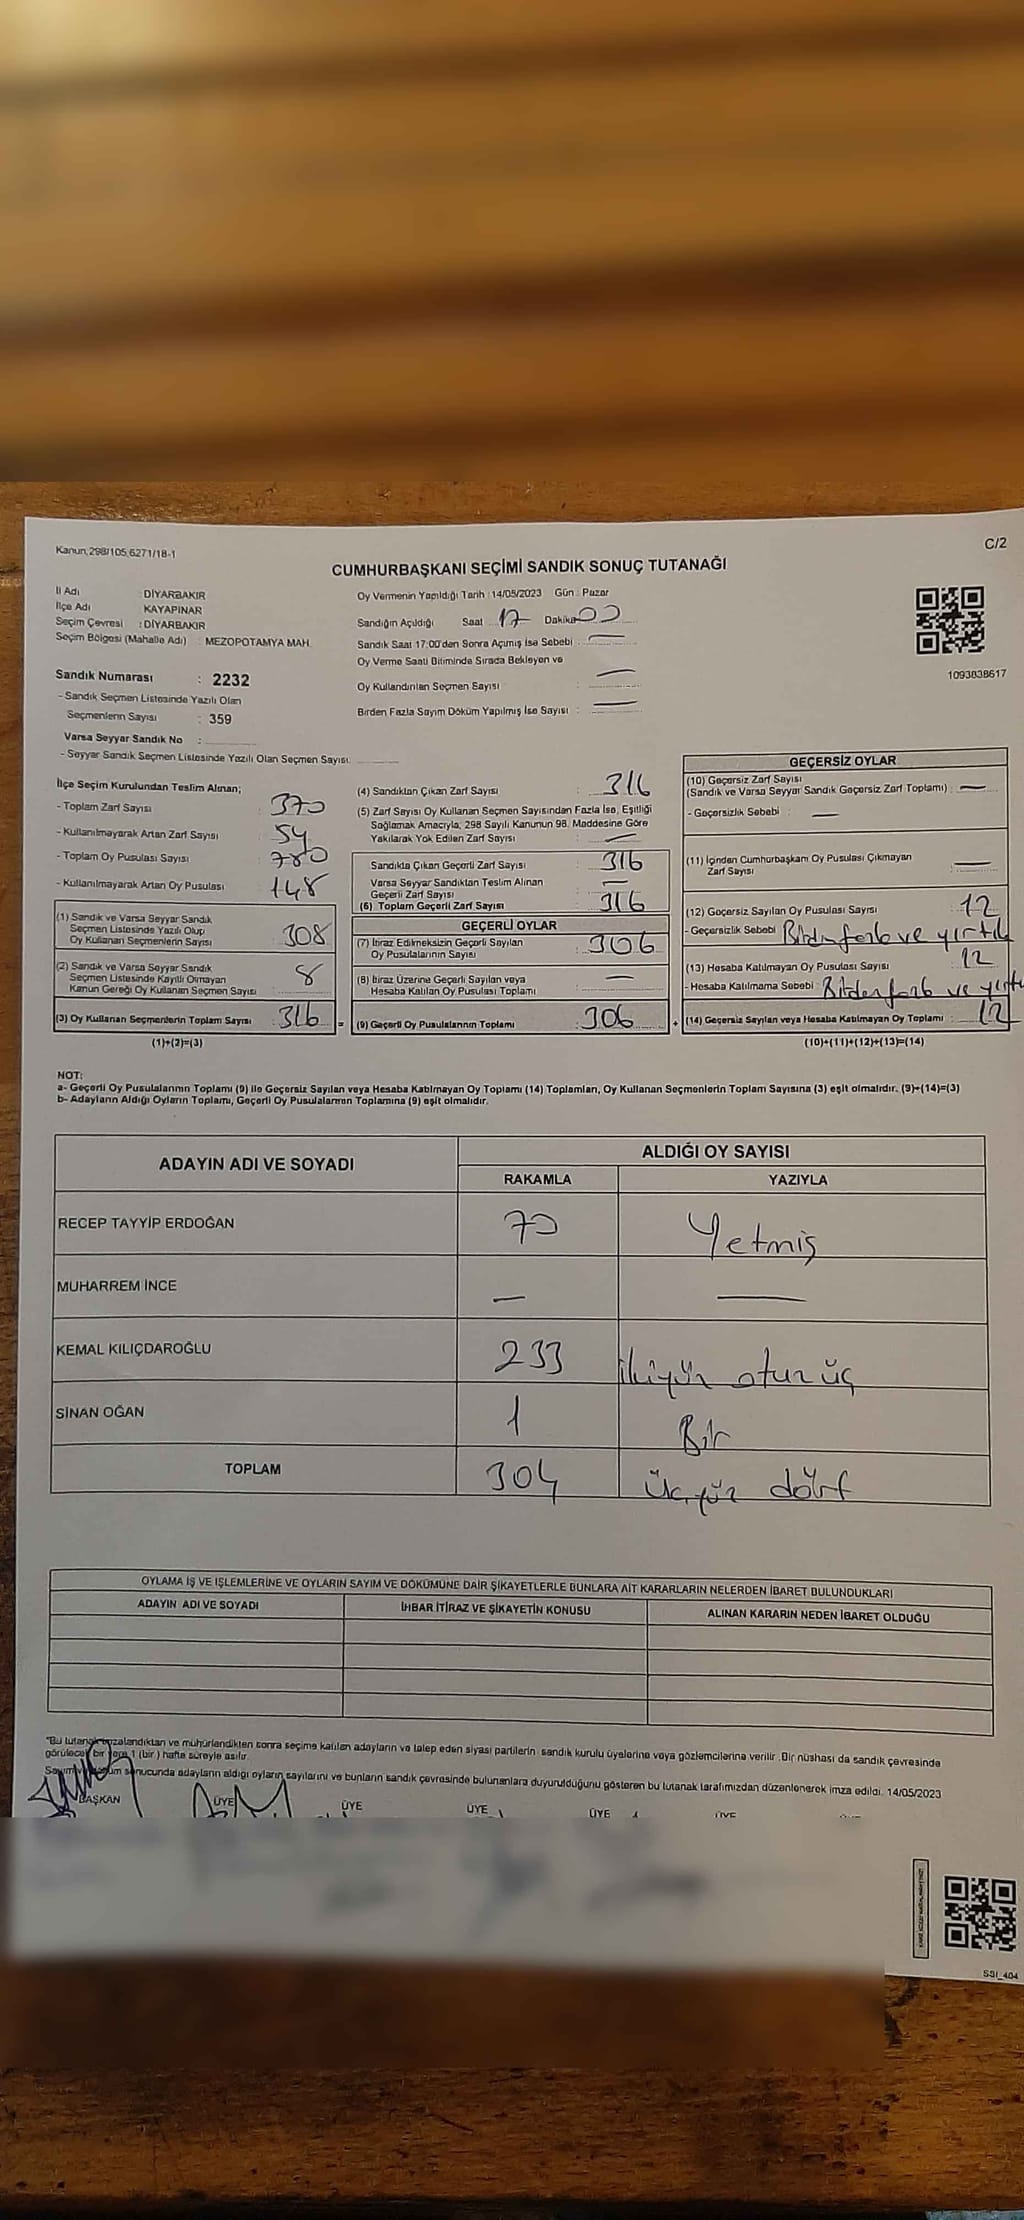 Kanun,298/105,6271/18-1
C/2
CUMHURBAŞKANI SEÇİMİ SANDIK SONUÇ TUTANAĞI
İl Adı : DİYARBAKIR
İlçe Adı : KAYAPINAR
Seçim Çevresi : DİYARBAKIR
Seçim Bölgesi (Mahalle Adı) : MEZOPOTAMYA MAH.
Oy Vermenin Yapıldığı Tarih : 14/05/2023 Gün : Pazar
Sandığın Açıldığı Saat 17 Dakika 00
Sandık Saat 17:00'den Sonra Açımış İse Sebebi : —
Oy Verme Saati Bitiminde Sırada Bekleyen ve
Oy Kullandırılan Seçmen Sayısı : —
Birden Fazla Sayım Döküm Yapılmış İse Sayısı : —
1093838617
Sandık Numarası : 2232
- Sandık Seçmen Listesinde Yazılı Olan
Seçmenlerin Sayısı : 359
Varsa Seyyar Sandık No :
- Seyyar Sandık Seçmen Listesinde Yazılı Olan Seçmen Sayısı:
İlçe Seçim Kurulundan Teslim Alınan;
- Toplam Zarf Sayısı : 370
- Kullanılmayarak Artan Zarf Sayısı : 54
- Toplam Oy Pusulası Sayısı :
- Kullanılmayarak Artan Oy Pusulası : 148
(1) Sandık ve Varsa Seyyar Sandık
Seçmen Listesinde Yazılı Olup
Oy Kullanan Seçmenlerin Sayısı : 308
(2) Sandık ve Varsa Seyyar Sandık
Seçmen Listesinde Kayıtlı Olmayan
Kanun Gereği Oy Kullanan Seçmen Sayısı : 8
(3) Oy Kullanan Seçmenlerin Toplam Sayısı : 316 =
(1)+(2)=(3)
(4) Sandıktan Çıkan Zarf Sayısı : 316
(5) Zarf Sayısı Oy Kullanan Seçmen Sayısından Fazla İse, Eşitliği
Sağlamak Amacıyla, 298 Sayılı Kanunun 98. Maddesine Göre
Yakılarak Yok Edilen Zarf Sayısı : —
Sandıkta Çıkan Geçerli Zarf Sayısı : 316
Varsa Seyyar Sandıktan Teslim Alınan
Geçerli Zarf Sayısı : —
(6) Toplam Geçerli Zarf Sayısı : 316
GEÇERLİ OYLAR
(7) İtiraz Edilmeksizin Geçerli Sayılan
Oy Pusulalarının Sayısı : 306
(8) İtiraz Üzerine Geçerli Sayılan veya
Hesaba Katılan Oy Pusulası Toplamı : —
(9) Geçerli Oy Pusulalarının Toplamı : 306 +
GEÇERSİZ OYLAR
(10) Geçersiz Zarf Sayısı
(Sandık ve Varsa Seyyar Sandık Geçersiz Zarf Toplamı) : —
- Geçersizlik Sebebi : —
(11) İçinden Cumhurbaşkanı Oy Pusulası Çıkmayan
Zarf Sayısı : —
(12) Geçersiz Sayılan Oy Pusulası Sayısı : 12
- Geçersizlik Sebebi : Birden fazla ve yırtık
(13) Hesaba Katılmayan Oy Pusulası Sayısı : 12
- Hesaba Katılmama Sebebi : Birden fazla ve yırtı
(14) Geçersiz Sayılan veya Hesaba Katılmayan Oy Toplamı : 12
(10)+(11)+(12)+(13)=(14)
NOT:
a- Geçerli Oy Pusulalarının Toplamı (9) ile Geçersiz Sayılan veya Hesaba Katılmayan Oy Toplamı (14) Toplamları, Oy Kullanan Seçmenlerin Toplam Sayısına (3) eşit olmalıdır. (9)+(14)=(3)
b- Adayların Aldığı Oyların Toplamı, Geçerli Oy Pusulalarının Toplamına (9) eşit olmalıdır.
ADAYIN ADI VE SOYADI
ALDIĞI OY SAYISI
RAKAMLA YAZIYLA
RECEP TAYYİP ERDOĞAN 70 Yetmiş
MUHARREM İNCE — —
KEMAL KILIÇDAROĞLU 233 ikiyüz otuz üç
SİNAN OĞAN 1 Bir
TOPLAM 304 üçyüz dört
OYLAMA İŞ VE İŞLEMLERİNE VE OYLARIN SAYIM VE DÖKÜMÜNE DAİR ŞİKAYETLERLE BUNLARA AİT KARARLARIN NELERDEN İBARET BULUNDUKLARI
ADAYIN ADI VE SOYADI İHBAR İTİRAZ VE ŞİKAYETİN KONUSU ALINAN KARARIN NEDEN İBARET OLDUĞU
"Bu tutanak imzalandıktan ve mühürlendikten sonra seçime katılan adayların ve talep eden siyasi partilerin sandık kurulu üyelerine veya gözlemcilerine verilir. Bir nüshası da sandık çevresinde
görülecek bir yere 1 (bir) hafta süreyle asılır.
Sayım ve döküm sonucunda adayların aldığı oyların sayılarını ve bunların sandık çevresinde bulunanlara duyurulduğunu gösteren bu tutanak tarafımızdan düzenlenerek imza edildi. 14/05/2023
BAŞKAN ÜYE ÜYE ÜYE ÜYE ÜYE
SSI_404